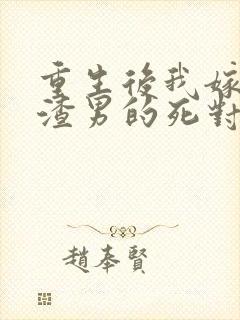 重生後我嫁
渣男的死對
趙奉賢